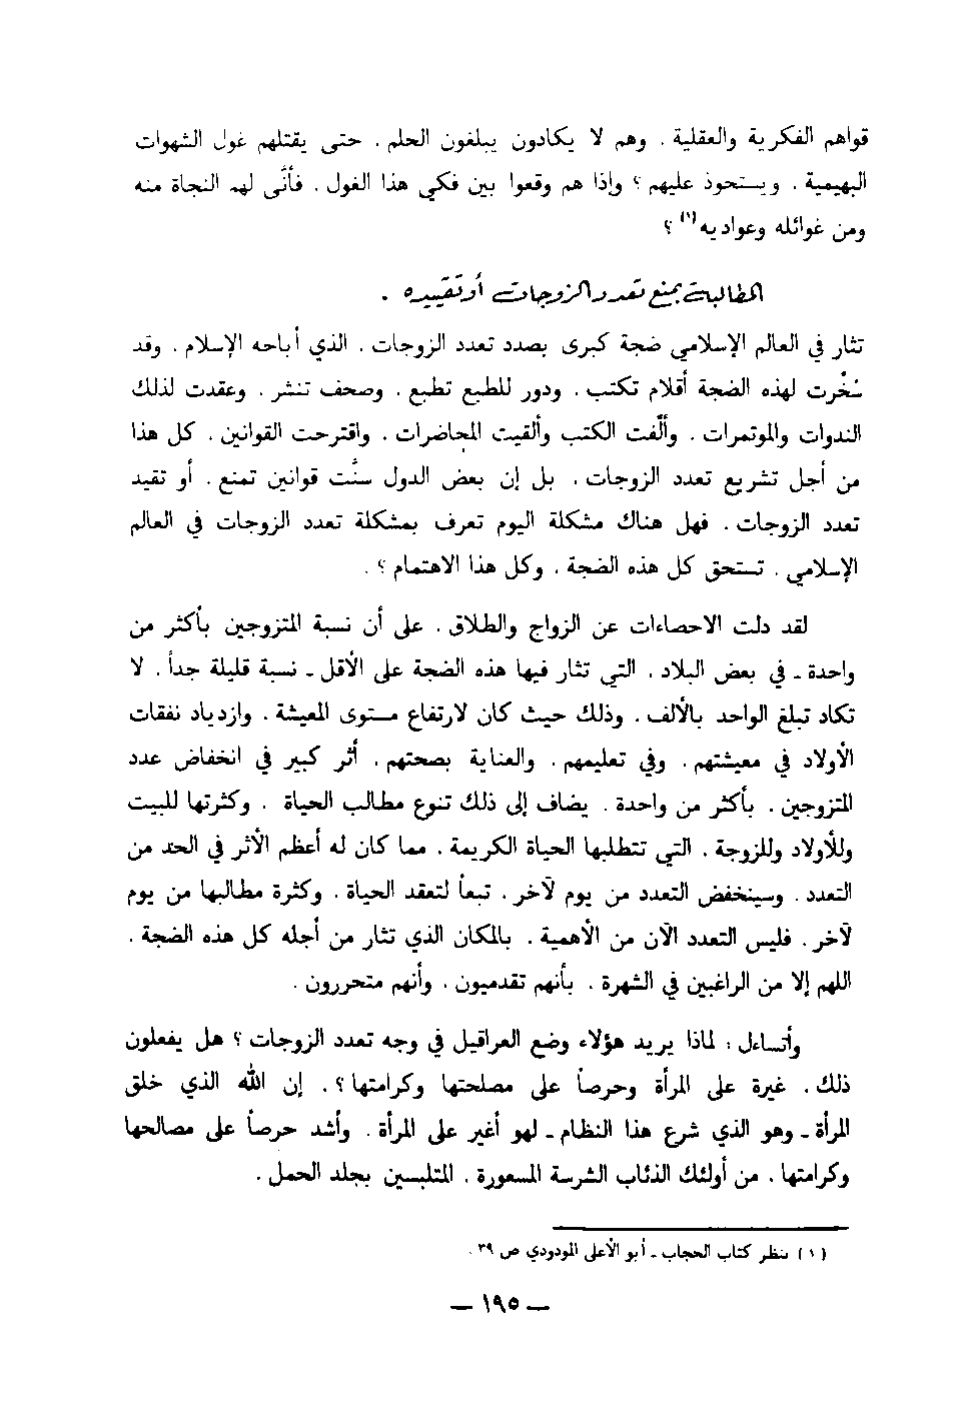 قواهم الفكرية والعقلية . وهم لا يكادون يبلغون الحلم . حتى يقتلهم غول الشهوات
البهيمية . ويستحوذ عليهم ؟ وإذا هم وقعوا بين فكي هذا الغول . فأنَّى لهم النجاة منه
ومن غوائله وعواديه (١) ؟
المطالبة بمنع تعدد الزوجات أو تقييده .
تثار في العالم الإسلامي ضجة كبرى بصدد تعدد الزوجات . الذي أباحه الإسلام . وقد
سُخّرت لهذه الضجة أقلام تكتب . ودور للطبع تطبع . وصحف تنشر . وعقدت لذلك
الندوات والموتمرات . وألّفت الكتب وألقيت المحاضرات . واقترحت القوانين . كل هذا
من أجل تشريع تعدد الزوجات . بل إن بعض الدول سنَّت قوانين تمنع . أو تقيد
تعدد الزوجات . فهل هناك مشكلة اليوم تعرف بمشكلة تعدد الزوجات في العالم
الإسلامي . تستحق كل هذه الضجة . وكل هذا الاهتمام ؟ .
لقد دلت الاحصاءات عن الزواج والطلاق . على أن نسبة المتزوجين بأكثر من
واحدة ـ في بعض البلاد . التي تثار فيها هذه الضجة على الأقل ـ نسبة قليلة جداً . لا
تكاد تبلغ الواحد بالألف . وذلك حيث كان لارتفاع مستوى المعيشة . وازدياد نفقات
الأولاد في معيشتهم . وفي تعليمهم . والعناية بصحتهم . أثر كبير في انخفاض عدد
المتزوجين . بأكثر من واحدة . يضاف إلى ذلك تنوع مطالب الحياة . وكثرتها للبيت
وللأولاد وللزوجة . التي تتطلبها الحياة الكريمة . مما كان له أعظم الأثر في الحد من
التعدد . وسينخفض التعدد من يوم لآخر . تبعاً لتعقد الحياة . وكثرة مطالبها من يوم
لآخر . فليس التعدد الآن من الأهمية . بالمكان الذي تثار من أجله كل هذه الضجة .
اللهم إلا من الراغبين في الشهرة . بأنهم تقدميون . وأنهم متحررون .
وأتساءل : لماذا يريد هؤلاء وضع العراقيل في وجه تعدد الزوجات ؟ هل يفعلون
ذلك . غيرة على المرأة وحرصاً على مصلحتها وكرامتها ؟ . إن الله الذي خلق
المرأة ـ وهو الذي شرع هذا النظام ـ لهو أغير على المرأة . وأشد حرصاً على مصالحها
وكرامتها . من أولئك الذئاب الشرسة المسعورة . المتلبسين بجلد الحمل .
(١) ينظر كتاب الحجاب ـ أبو الأعلى المودودي ص ٣٩ .
— ١٩٥ —